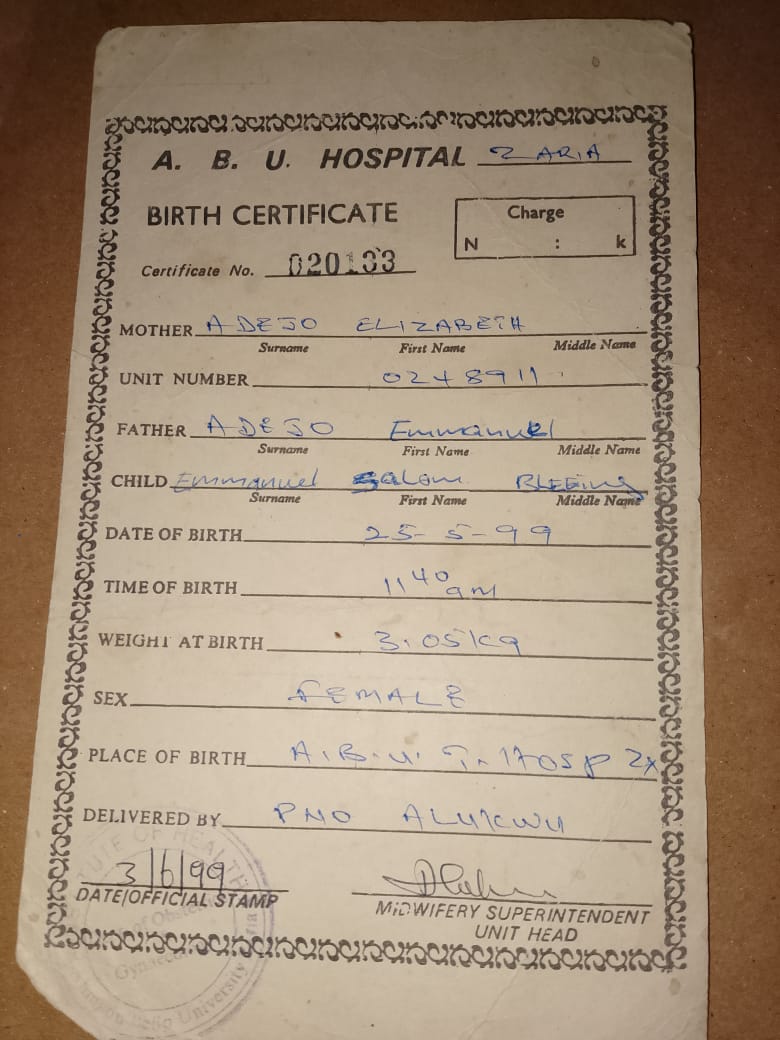 A. B. U. HOSPITAL ZARIA
BIRTH CERTIFICATE
Charge
N : k
Certificate No. 020133
MOTHER ADEJO ELIZABETH
Surname First Name Middle Name
UNIT NUMBER 0248911
FATHER ADEJO Emmanuel
Surname First Name Middle Name
CHILD Emmanuel Salom
Surname First Name Middle Name
DATE OF BIRTH 25-5-99
TIME OF BIRTH 11 40 am
WEIGHT AT BIRTH 3.05kg
SEX FEMALE
PLACE OF BIRTH A.B.U. T. HOSP
DELIVERED BY PNO ALUKWU
3/6/99
DATE/OFFICIAL STAMP
MIDWIFERY SUPERINTENDENT
UNIT HEAD
OF HEALTH
University